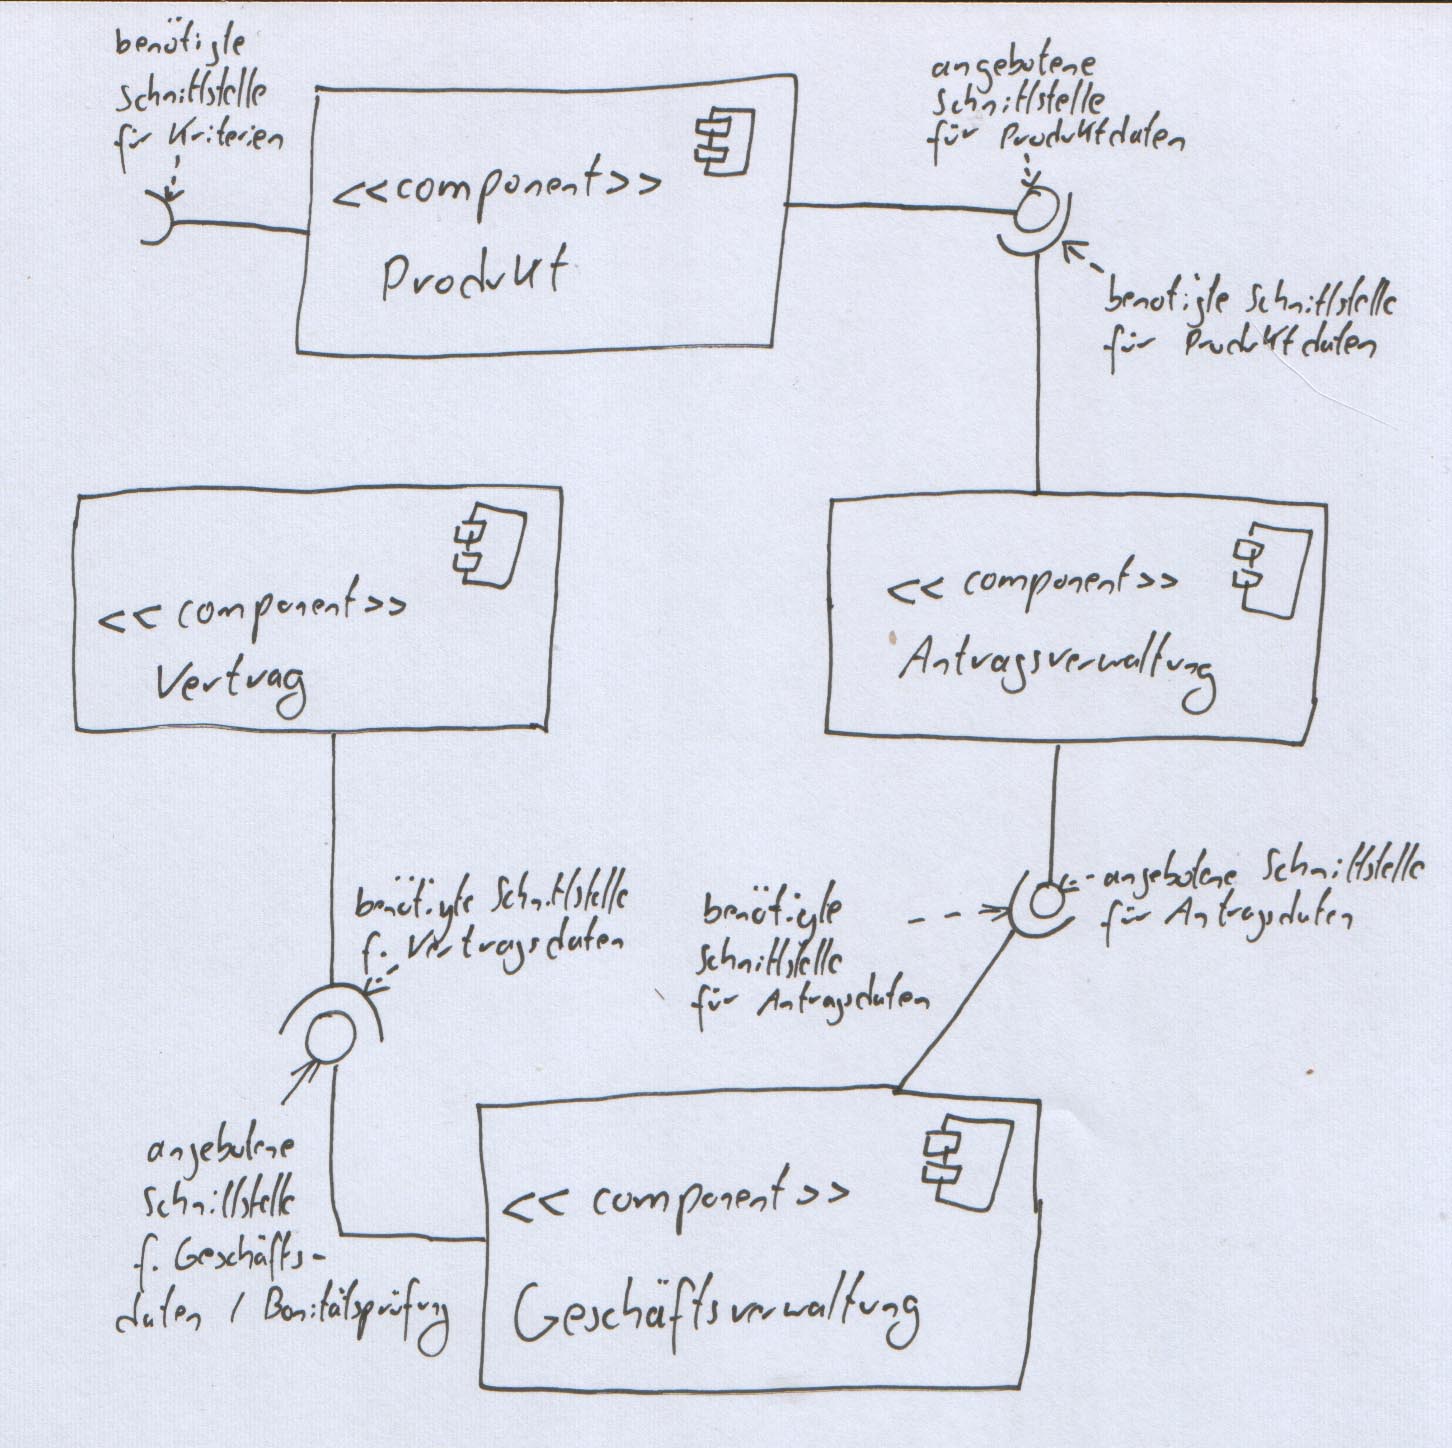 benötigte
Schnittstelle
für Kriterien
angebotene
Schnittstelle
für Produktdaten
<<component>>
Produkt
benötigte Schnittstelle
für Produktdaten
<<component>>
Vertrag
<<component>>
Antragsverwaltung
benötigte Schnittstelle
f. Vertragsdaten
benötigte
Schnittstelle
für Antragsdaten
angebotene Schnittstelle
für Antragsdaten
angebotene
Schnittstelle
f. Geschäfts-
daten / Bonitätsprüfung
<<component>>
Geschäftsverwaltung